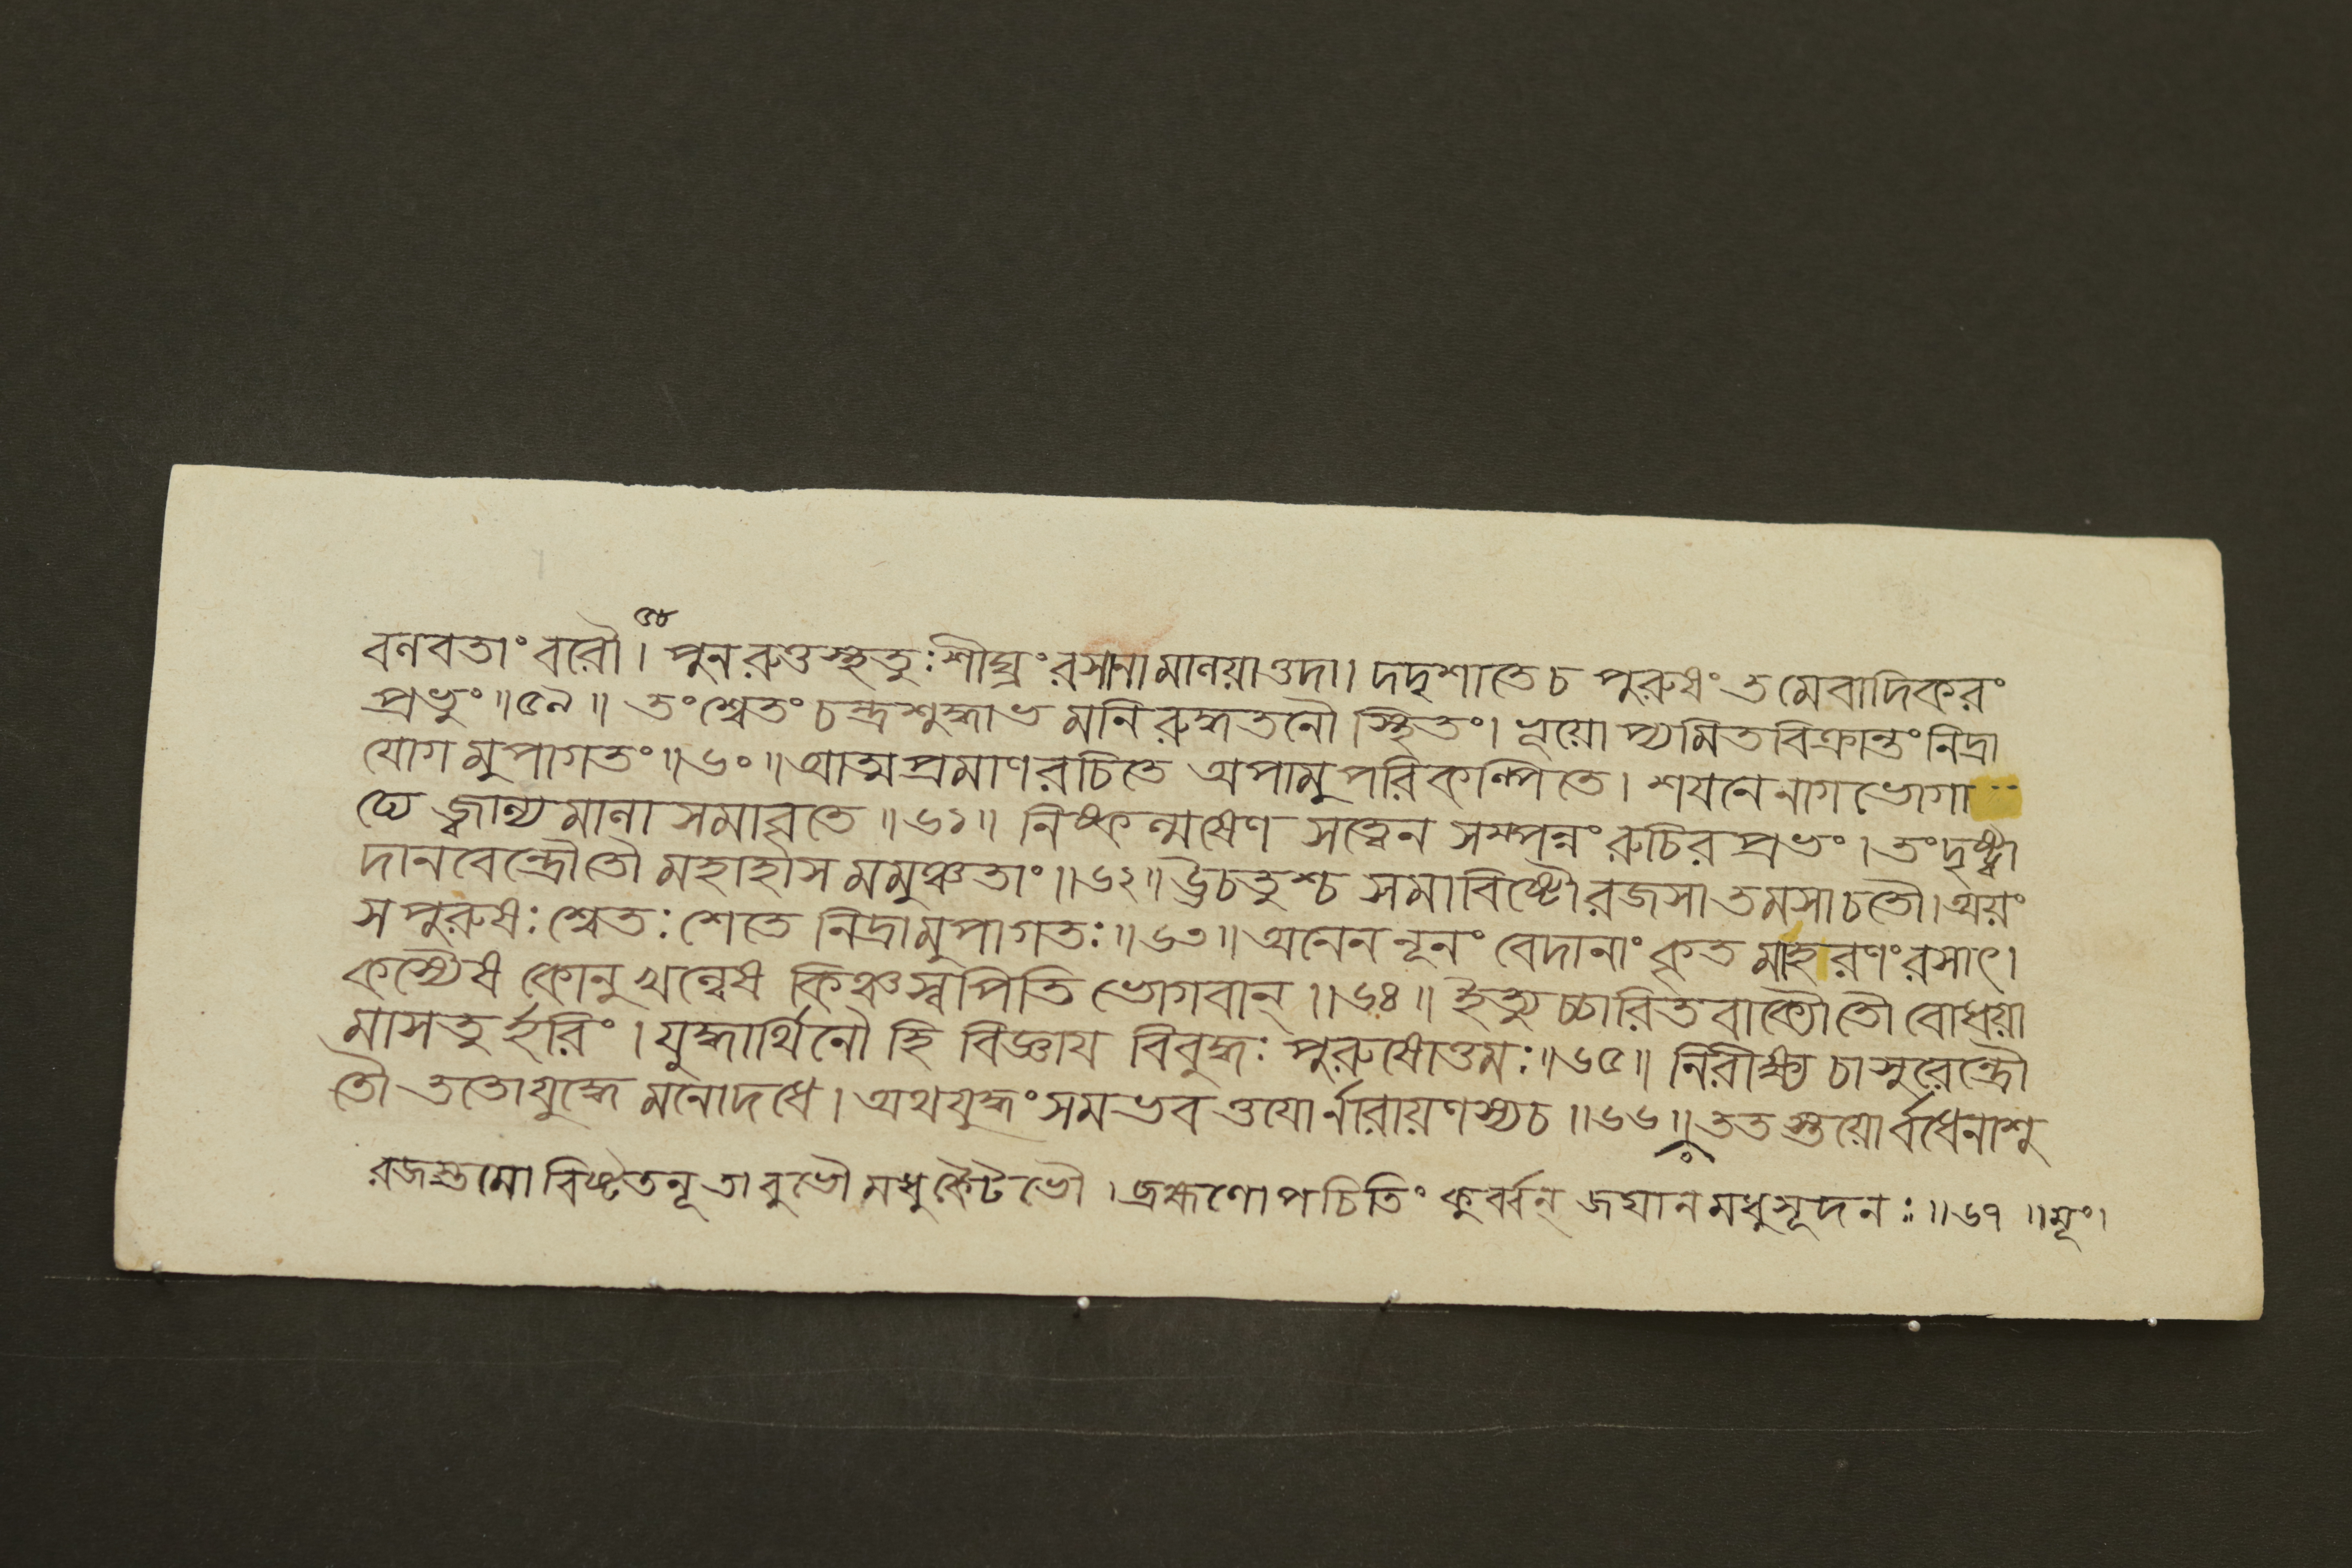 ৫৮
বলবতাং বরৌ। পুনরুত্তস্থতুঃ শীঘ্রং রসানামালয়াত্তদা। দদৃশাতে চ পুরুষং তমেবাদিকরং
প্রভুং॥৫৯॥ তং শ্বেতং চন্দ্রশুদ্ধাভমনিরুদ্ধতনৌ স্থিতং। ভূয়োপ্যমিতবিক্রান্তং নিদ্রা
যোগমুপাগতং॥৬০॥ আত্মপ্রমাণরচিতে অপামুপরি কল্পিতে। শয়নে নাগভোগা
ঢ্যে জ্বালামালাসমাবৃতে॥৬১॥ নিষ্কল্মষেণ সত্ত্বেন সম্পন্নং রুচিরপ্রভং। তং দৃষ্ট্বা
দানবেন্দ্রৌ তৌ মহাহাসমমুঞ্চতাং॥৬২॥ ঊচতুশ্চ সমাবিষ্টৌ রজসা তমসা চ তৌ। অয়ং
স পুরুষঃ শ্বেতঃ শেতে নিদ্রামুপাগতঃ॥৬৩॥ অনেন নূনং বেদানাং কৃতমাহরণং রসাৎ।
কস্যৈষ কোনু খল্বেষ কিঞ্চ স্বপিতি ভোগবান্॥৬৪॥ ইত্যুচ্চারিতবাক্যৌ তৌ বোধয়া
মাসতুর্হরিং। যুদ্ধার্থিনৌ হি বিজ্ঞায় বিবুদ্ধঃ পুরুষোত্তমঃ॥৬৫॥ নিরীক্ষ্য চাসুরেন্দ্রৌ
তৌ ততো যুদ্ধে মনো দধে। অথ যুদ্ধং সমভবত্তযোর্নারায়ণস্য চ॥৬৬॥ ততস্তয়োর্বধেনাশু
রজস্তমোবিষ্টতনূ তাবুভৌ মধুকৈটভৌ। ব্রহ্মণোপচিতিং কুর্ব্বন্ জঘান মধুসূদনঃ॥৬৭॥ মূং।